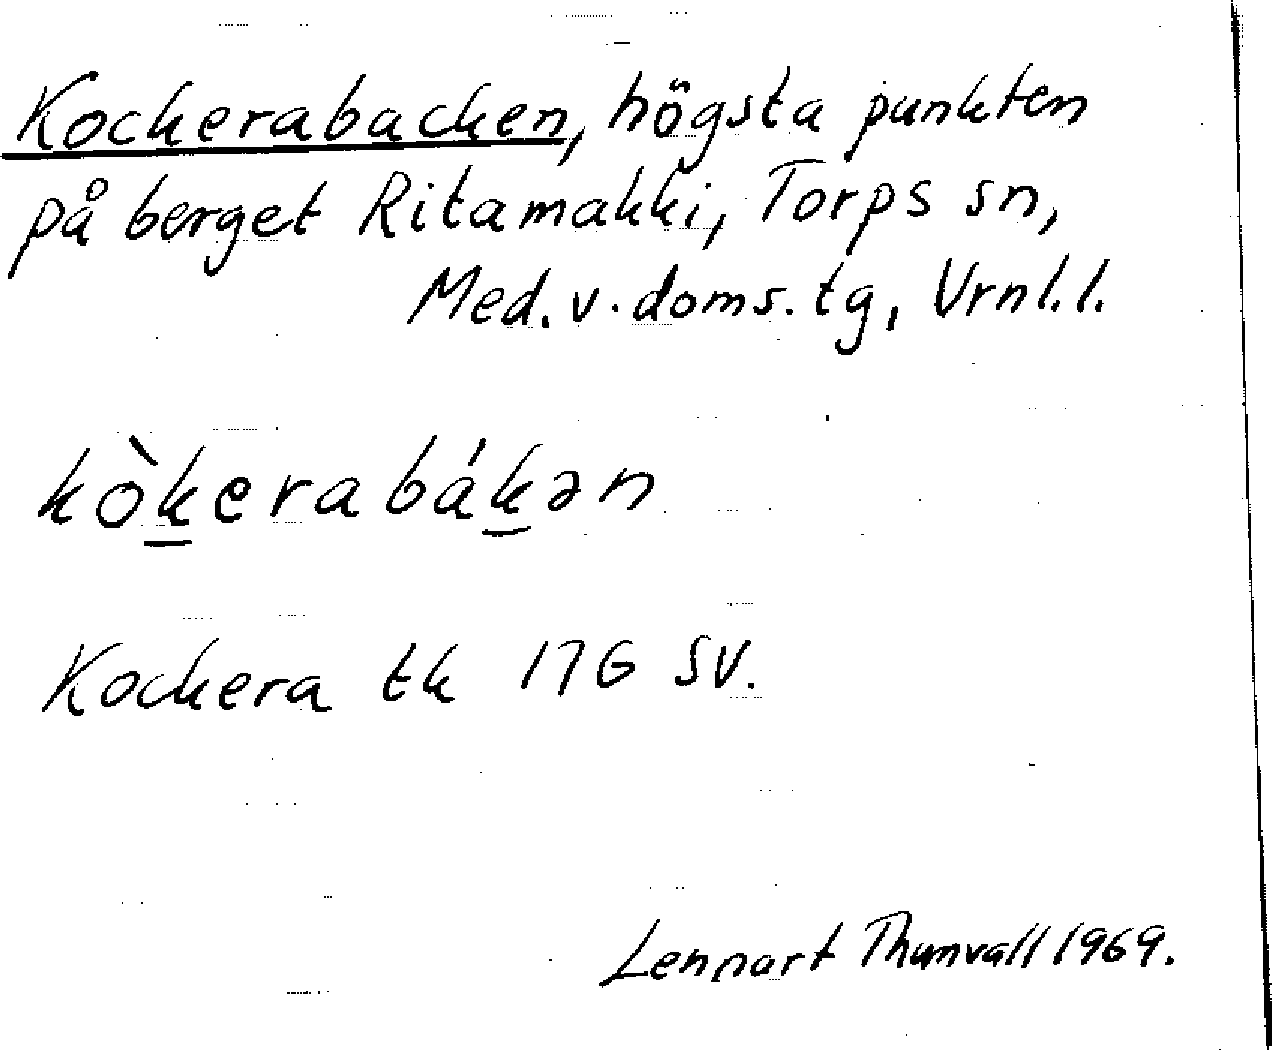 Kockerabacken, högsta punkten
på berget Ritamakki, Torps sn,
Med. v. doms. tg, Vrnl. l.
kòk̲erabák̲ən
Kockera tk 17G SV.
Lennart Thunvall 1969.